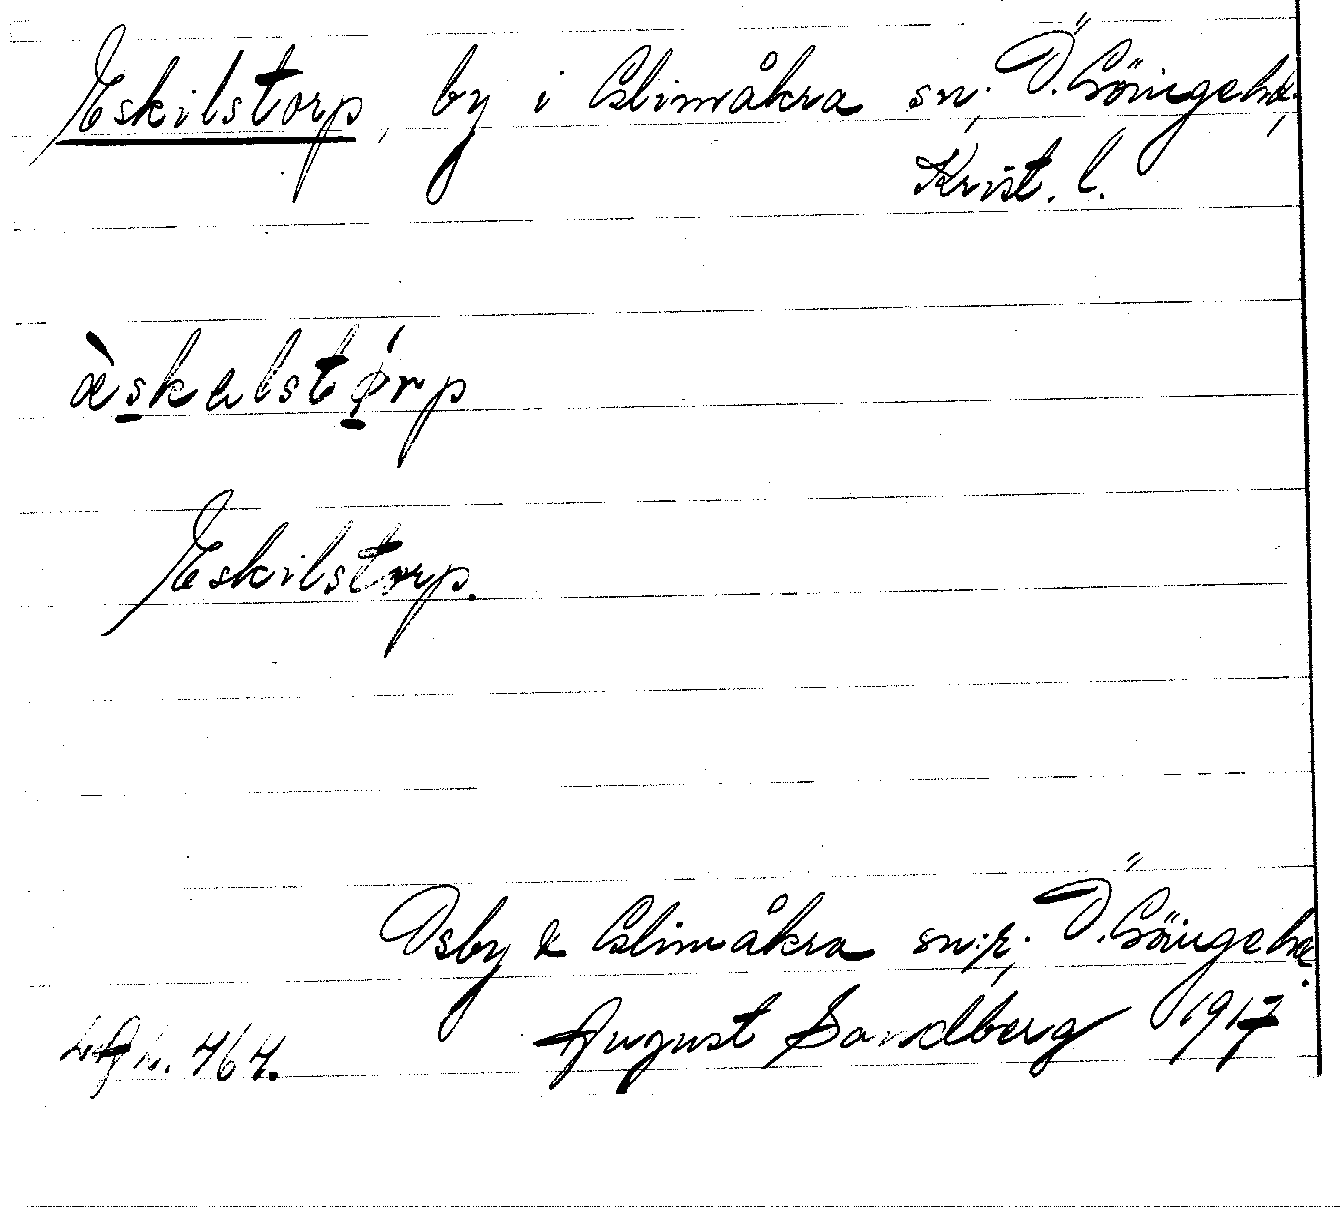 Eskilstorp, by i Glimåkra sn, Ö. Göingehd,
Krist. l.
æ̀skalstǿrp
Eskilstorp.
Osby & Glimåkra sn:r, Ö. Göingehd.
464. August Sandberg 1917